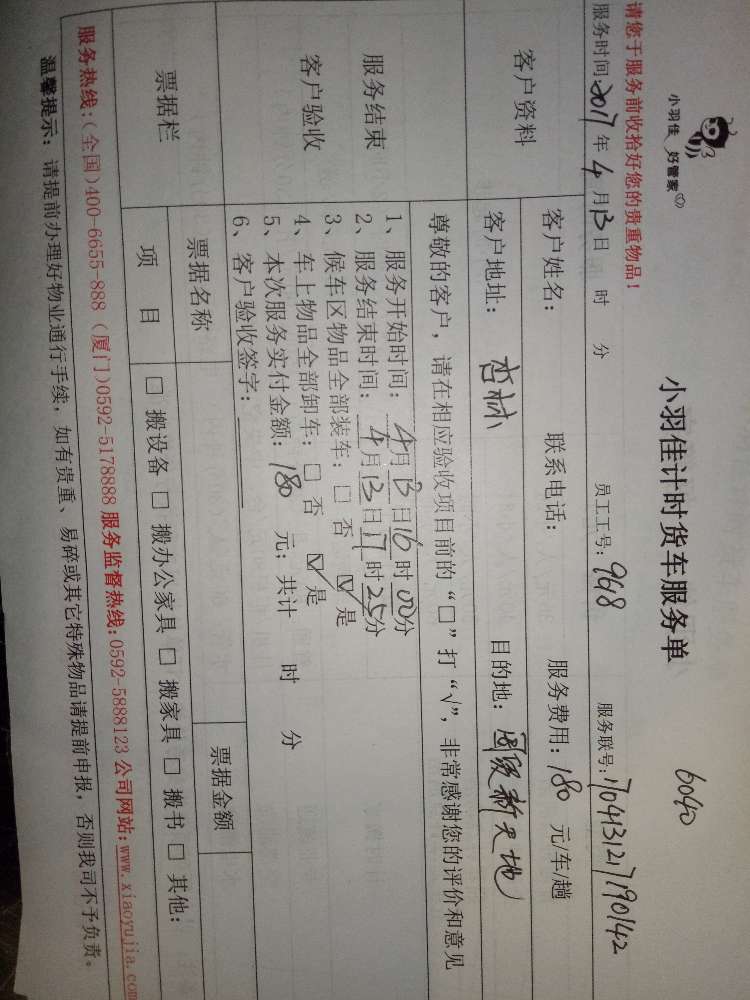 小羽佳 好管家
小羽佳计时货车服务单
6040
请您于服务前收拾好您的贵重物品！
服务时间:2017年4月13日 时 分 员工工号: 968 服务联号: 1704131217190142
客户资料
客户姓名: 联系电话: 服务费用: 180 元/车/趟
客户地址: 杏林 目的地: 新天地
服务结束
客户验收
尊敬的客户，请在相应验收项目前的“□”打“√”，非常感谢您的评价和意见
1、服务开始时间: 4月13日16时00分
2、服务结束时间: 4月13日17时25分
3、候车区物品全部装车: □ 否 ☑ 是
4、车上物品全部卸车: □ 否 ☑ 是
5、本次服务实付金额: 180 元; 共计 时 分
6、客户验收签字:
票据栏
票据名称 票据金额
项 目 □ 搬设备 □ 搬办公家具 □ 搬家具 □ 搬书 □ 其他:
服务热线:(全国)400-6655-888 (厦门)0592-5178888 服务监督热线:0592-5888123 公司网站:www.xiaoyujia.com
温馨提示: 请提前办理好物业通行手续，如有贵重、易碎或其它特殊物品请提前申报，否则我司不予负责。